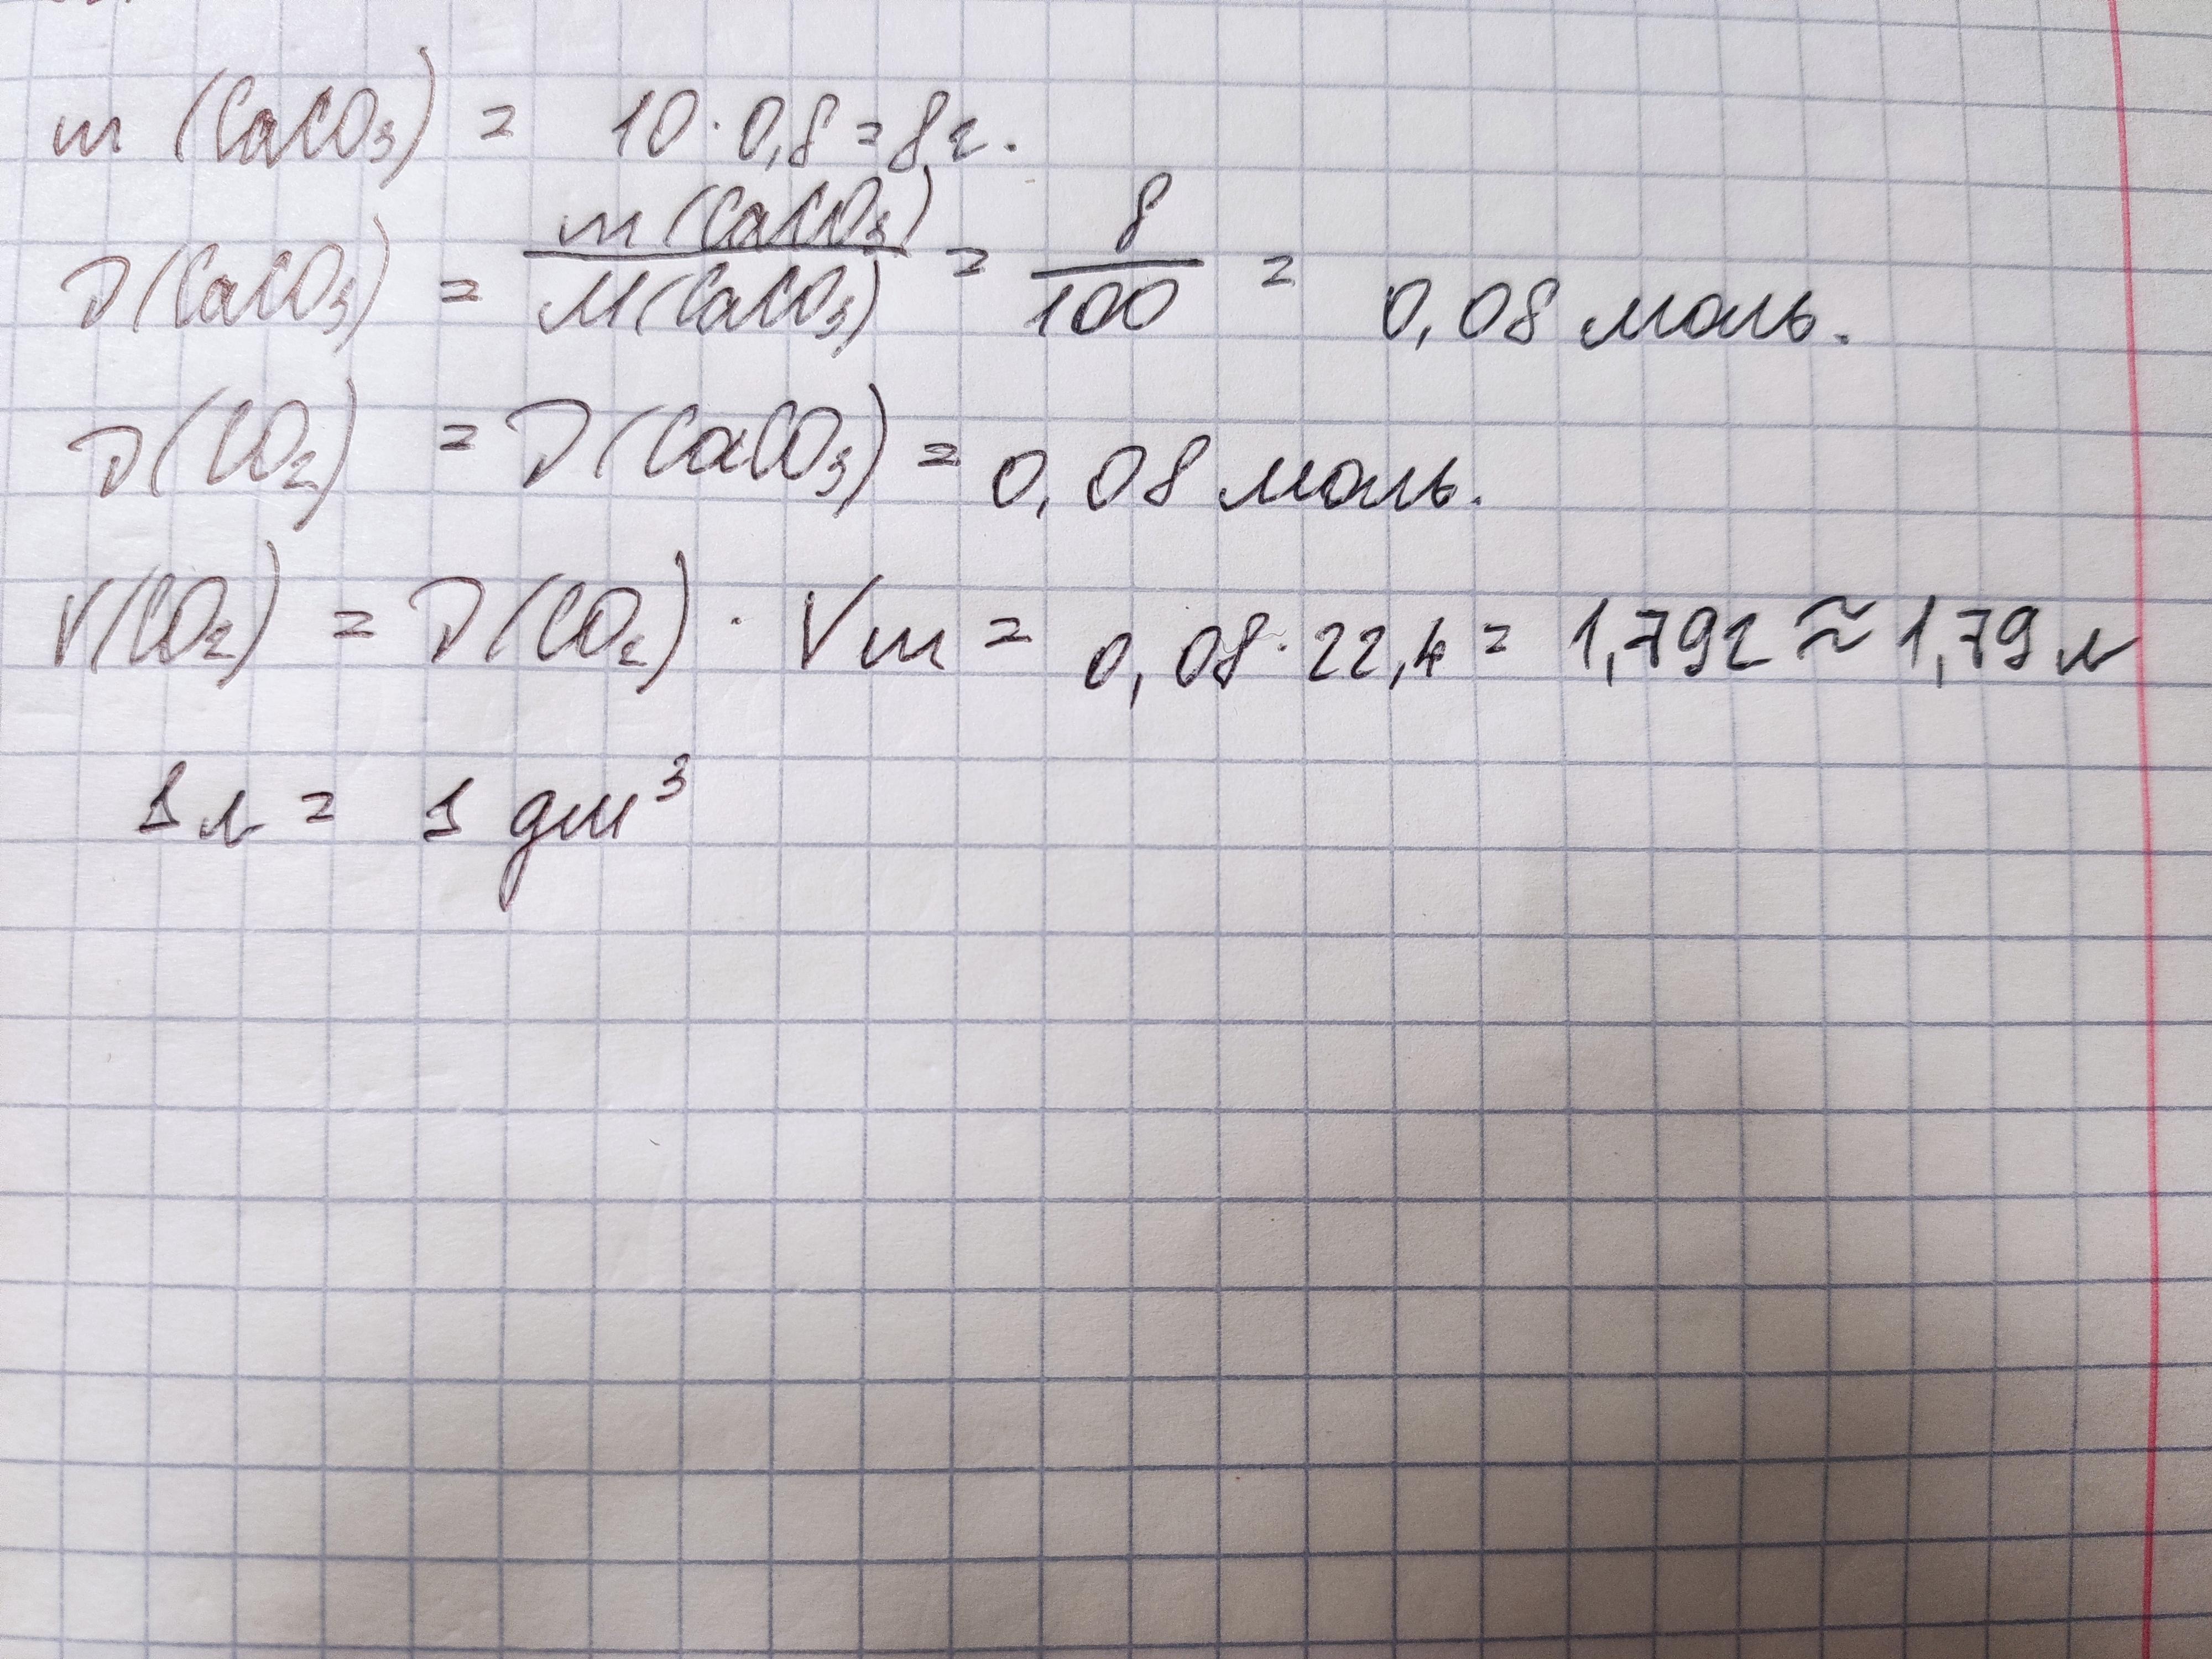 m (CaCO₃) = 10 · 0,8 = 8 г.
ν(CaCO₃) = m (CaCO₃) / M (CaCO₃) = 8 / 100 = 0,08 моль.
ν(CO₂) = ν(CaCO₃) = 0,08 моль.
V(CO₂) = ν(CO₂) · Vm = 0,08 · 22,4 = 1,792 ≈ 1,79 л
1 л = 1 дм³